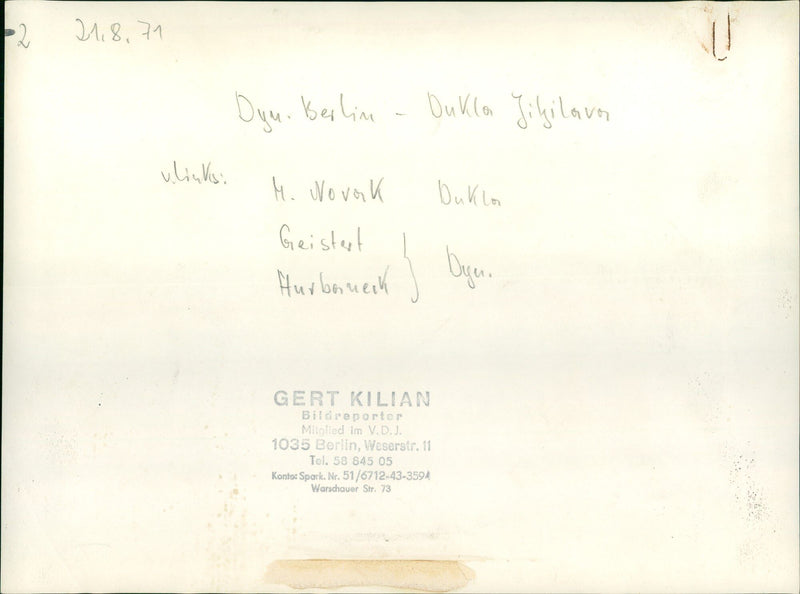 2 21.8.71
Dyn. Berlin - Dukla Jihlava
v. links: M. Novak Dukla
Geistert
Hurbanek } Dyn.
GERT KILIAN
Bildreporter
Mitglied im V.D.J.
1035 Berlin, Weserstr. 11
Tel. 58 845 05
Konto: Spark. Nr. 51/6712-43-3594
Warschauer Str. 73